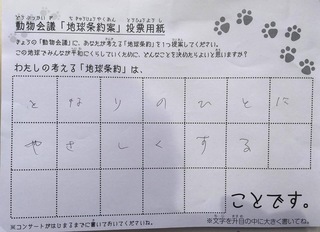 動物会議「地球条約案」投票用紙
きょうの「動物会議」に、あなたが考える「地球条約」を1つ提案してください。
この地球でみんなが平和にくらしていくために、どんなことを決めたらよいと思いますか?
わたしの考える「地球条約」は、
となりのひとに
やさしくする
ことです。
※文字を升目の中に大きく書いてね。
※コンサートがはじまるまでに書いておいてくださいな。